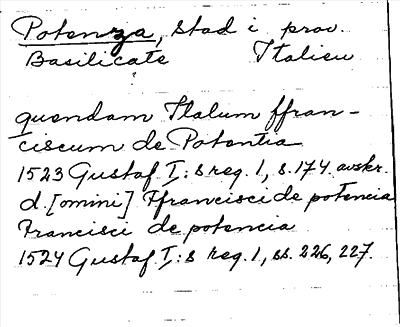 Potenza, stad i prov.
Basilicate Italien
quendam Italum ffran-
ciscum de Potentia
1523 Gustaf I:s reg. 1, s. 174 avskr.
d. [omini] Ffrancisci de potencia
Francisci de potencia
1524 Gustaf I:s reg. 1, ss. 226, 227.